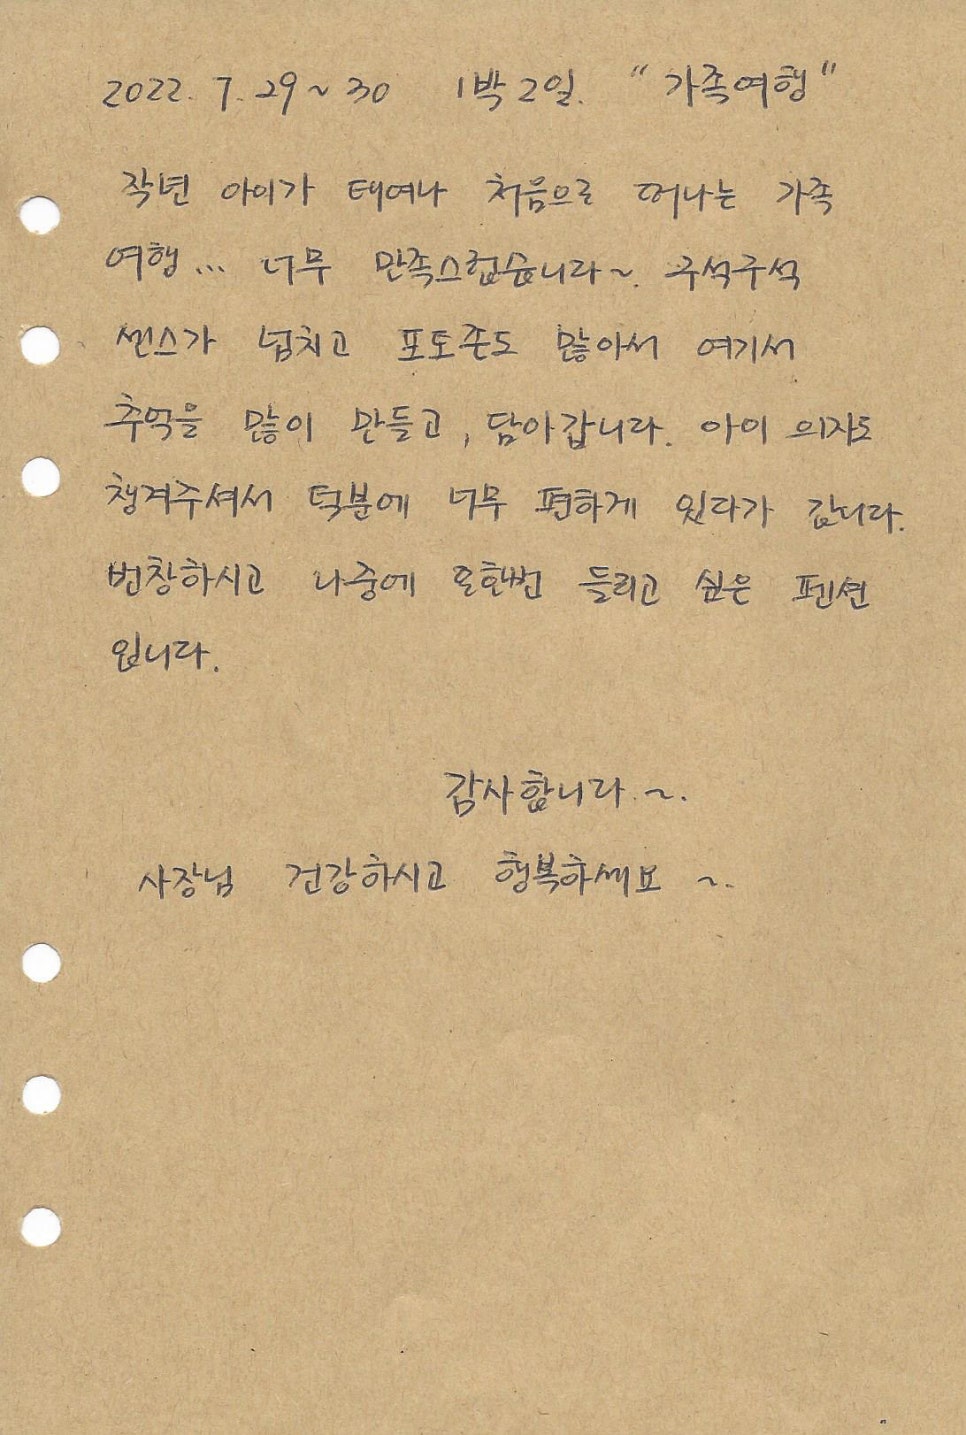 2022. 7. 29 ~ 30 1박 2일. "가족여행"
작년 아이가 태여나 처음으로 떠나는 가족
여행... 너무 만족스럽습니다~. 구석구석
센스가 넘치고 포토존도 많아서 여기서
추억을 많이 만들고, 담아갑니다. 아이 의자도
챙겨주셔서 덕분에 너무 편하게 있다가 갑니다.
번창하시고 나중에 또한번 들리고 싶은 펜션
입니다.
감사합니다. ~.
사장님 건강하시고 행복하세요 ~.